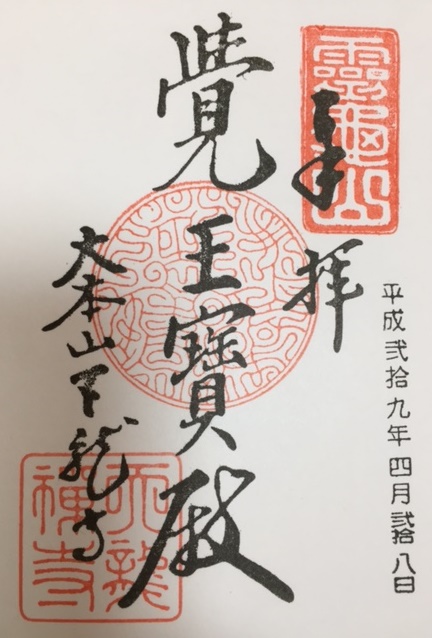 靈龜山
奉拝
平成弐拾九年 四月弐拾八日
覺王寶殿
大本山天龍寺
天龍禪寺